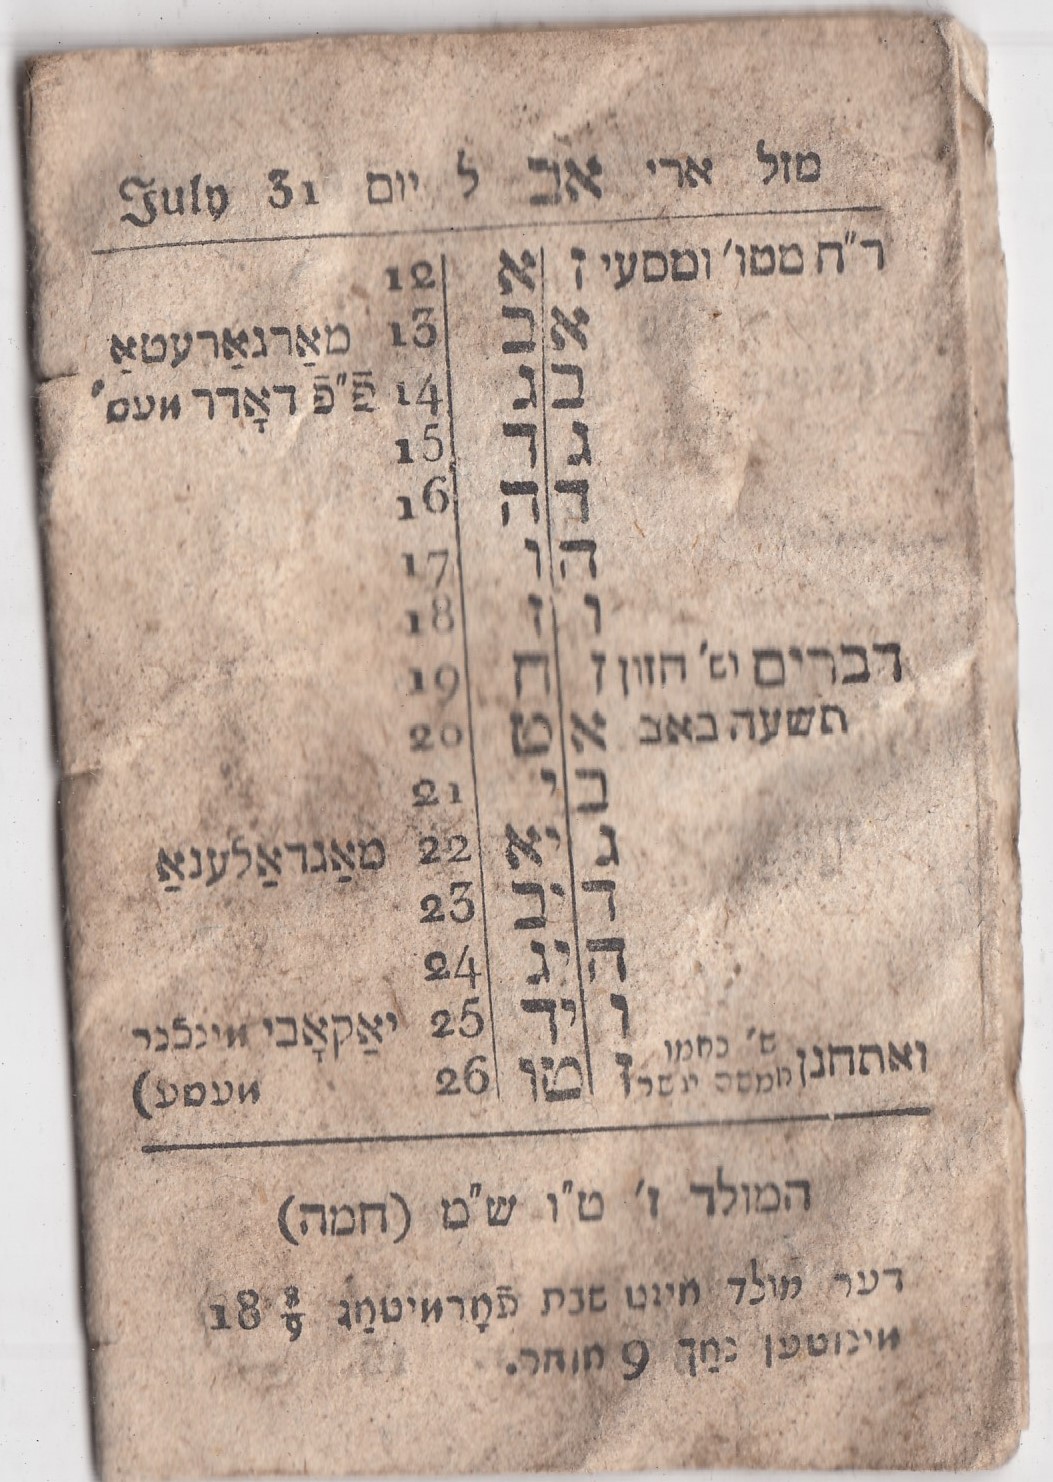 מזל ארי אב ל יום 31 July
ר"ח מטו' ומסעי ז א 12
א ב 13 מאַרגאַרעטאַ
ב ג 14 פֿ"פֿ דאָרר מעס'
ג ד 15
ד ה 16
ה ו 17
ו ז 18
דברים ש' חזון ז ח 19
תשעה באב א ט 20
ב י 21
ג יא 22 מאַגדאַלענאַ
ד יב 23
ה יג 24
ו יד 25 יאַקאָבי מינכנר
ואתחנן ש' נחמו חמשה עשר ז טו 26 מעסע)
המולד ז' ט"ו ש"מ (חמה)
דער מולד איזט שבת פֿאָרמיטאַג 18 8/9
מינוטען נאַך 9 אוהר.